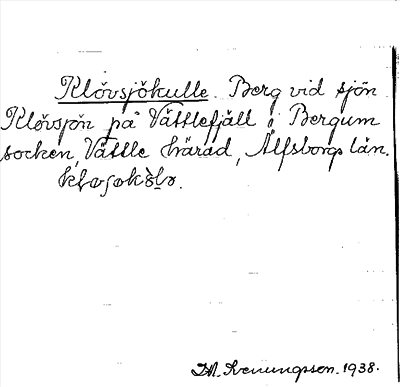 Klövsjökulle. Berg vid sjön
Klövsjön på Vättlefjäll i Bergum
socken, Vättle härad, Älfsborgs län.
J.M. Svenungsson. 1938.